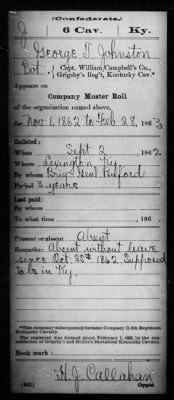 (Confederate.)
J 6 Cav. Ky.
George T. Johnston
Pvt., Capt. William Campbell's Co.,
Grigsby's Reg't, Kentucky Cav.*
Appears on
Company Muster Roll
of the organization named above,
for Nov 1, 1862 to Feb 28, 1863
Enlisted:
When Sept 2, 1862
Where Lexington, Ky.
By whom Brig. Gen. Buford
Period 3 years
Last paid:
By whom
To what time , 186 .
Present or absent Absent
Remarks: Absent without leave
since Oct. 25th 1862. Supposed
to be in Ky.
*This company subsequently became Company D, 6th Regiment
Kentucky Cavalry.
The regiment was formed about February 1, 1863, by the con-
solidation of Grigsby's and Battalion Kentucky Cavalry.
Book mark:
H. J. Callahan
(661) Copyist.